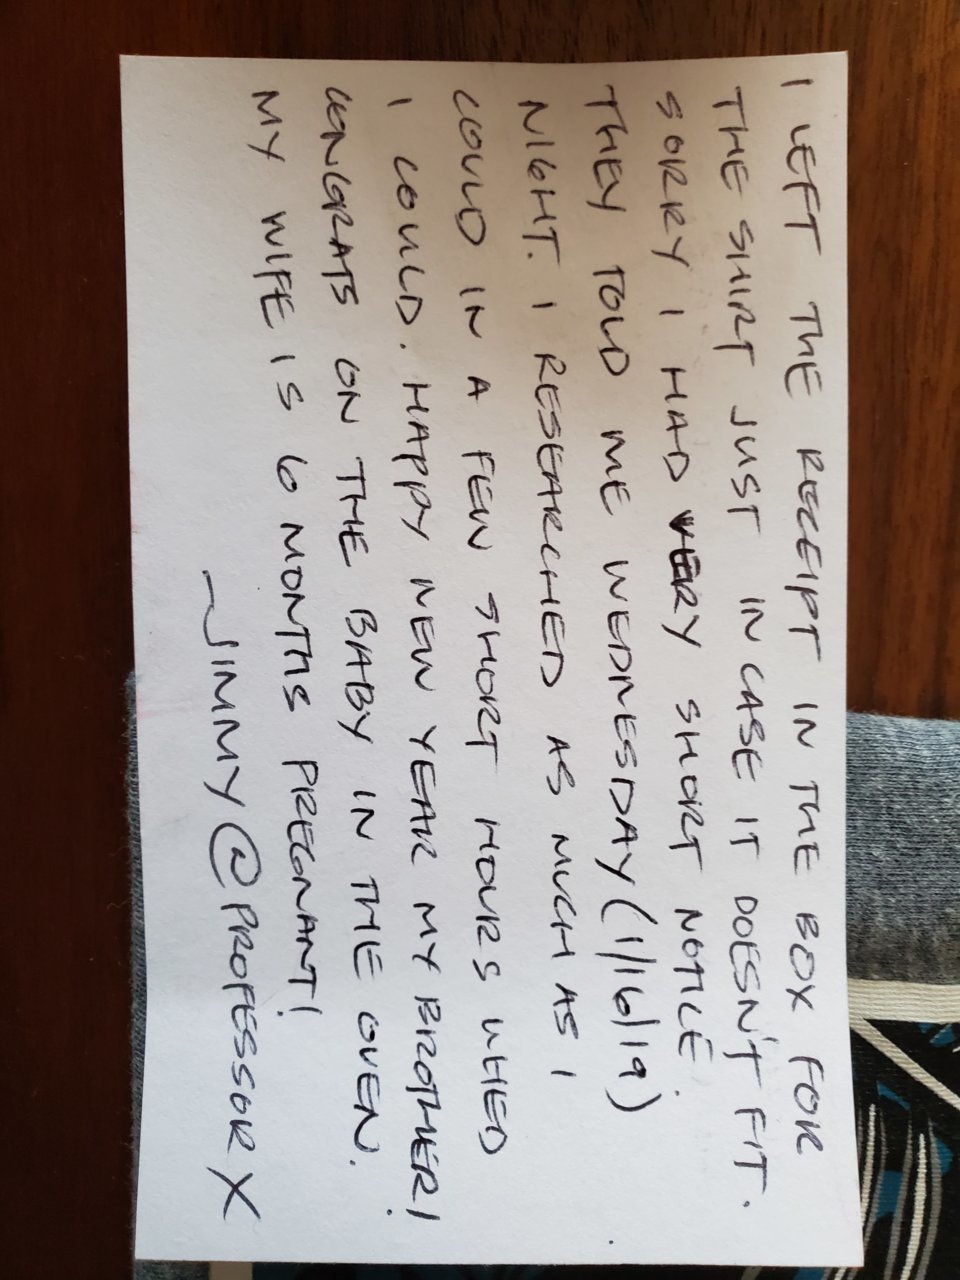 I LEFT THE RECEIPT IN THE BOX FOR
THE SHIRT JUST IN CASE IT DOESN'T FIT.
SORRY I HAD VERY SHORT NOTICE.
THEY TOLD ME WEDNESDAY (1/16/19)
NIGHT. I RESEARCHED AS MUCH AS I
COULD IN A FEW SHORT HOURS WHED
I COULD. HAPPY NEW YEAR MY BROTHER!
CONGRATS ON THE BABY IN THE OVEN.
MY WIFE IS 6 MONTHS PREGNANT!
~JIMMY @PROFESSOR X